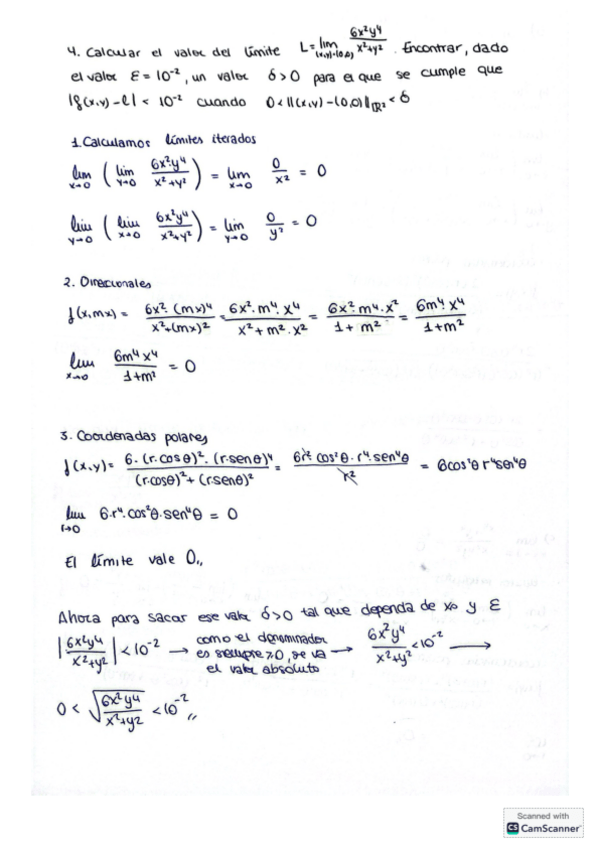 4. Calcular el valor del límite L = lim (x,y)→(0,0) 6x²y⁴/(x²+y²). Encontrar, dado
el valor ε = 10⁻², un valor δ>0 para el que se cumple que
|f(x,y) - l| < 10⁻² cuando 0 < ||(x,y) - (0,0)||ℝ² < δ
1. Calculamos límites iterados
lim x→0 ( lim y→0 6x²y⁴/(x²+y²) ) = lim x→0 0/x² = 0
lim y→0 ( lim x→0 6x²y⁴/(x²+y²) ) = lim y→0 0/y² = 0
2. Direccionales
f(x,mx) = 6x²·(mx)⁴/(x²+(mx)²) = 6x²·m⁴·x⁴/(x²+m²·x²) = 6x²·m⁴·x²/(1+m²) = 6m⁴x⁴/(1+m²)
lim x→0 6m⁴x⁴/(1+m²) = 0
3. Coordenadas polares
f(x,y) = 6·(r·cosθ)²·(r·senθ)⁴/((r·cosθ)²+(r·senθ)²) = 6r²·cos²θ·r⁴·sen⁴θ/r² = 6cos²θ r⁴sen⁴θ
lim r→0 6·r⁴·cos²θ·sen⁴θ = 0
El límite vale 0,,
Ahora para sacar ese valor δ>0 tal que dependa de x₀ y ε
|6x²y⁴/(x²+y²)| < 10⁻² → como el denominador es siempre ≥0, se va el valor absoluto → 6x²y⁴/(x²+y²) < 10⁻² →
0 < √(6x²y⁴/(x²+y²)) < 10⁻²,,
Scanned with
CS CamScanner